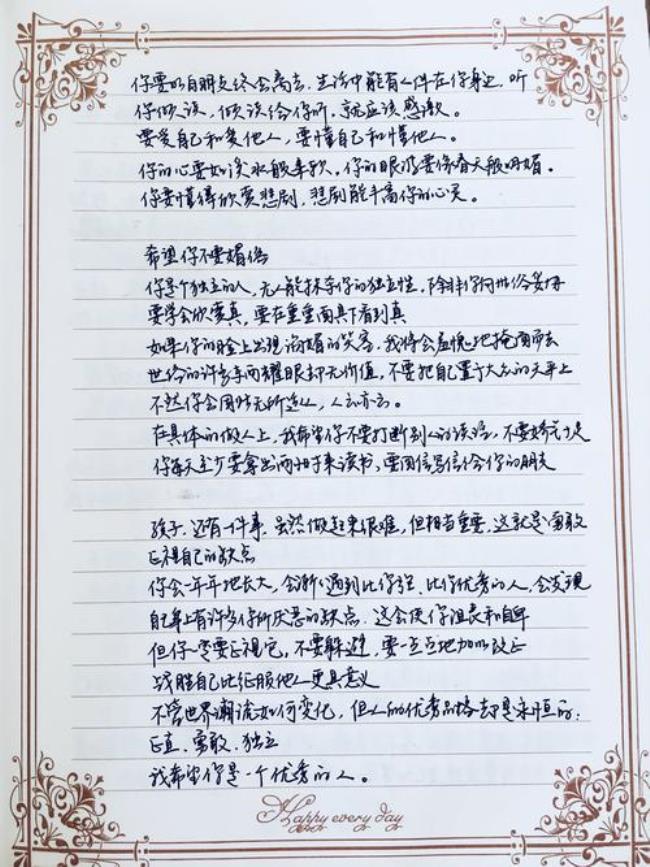 你要明白朋友终会离去,生活中能有人伴在你身边,听
你倾谈,倾谈给你听,就应该感激。
要爱自己和爱他人,要懂自己和懂他人。
你的心要如溪水般柔软,你的眼波要像春天般明媚。
你要懂得欣赏悲剧,悲剧能丰富你的心灵。
希望你不要媚俗
你是个独立的人,无人能抹杀你的独立性,除非你向世俗妥协
要学会欣赏真,要在重重面具下看到真
如果你的脸上出现谄媚的笑容,我将会羞愧地掩面而去
世俗的许多东西耀眼却无价值,不要把自己置于大众的天平上
不然你会因此无所适从,人云亦云。
在具体的做人上,我希望你不要打断别人的谈话,不要娇气十足
你每天至少要拿出两小时来读书,要回信写信给你的朋友
孩子,还有一件事,虽然做起来很难,但相当重要,这就是勇敢
正视自己的缺点
你会一年年地长大,会渐渐遇到比你强、比你优秀的人,会发现
自己身上有许多你所厌恶的缺点,这会使你沮丧和自卑
但你一定要正视它,不要躲避,要一点点地加以改正
战胜自己比征服他人更具意义
不管世界潮流如何变化,但人的优秀品格却是永恒的:
正直、勇敢、独立
我希望你是一个优秀的人。
Happy every day